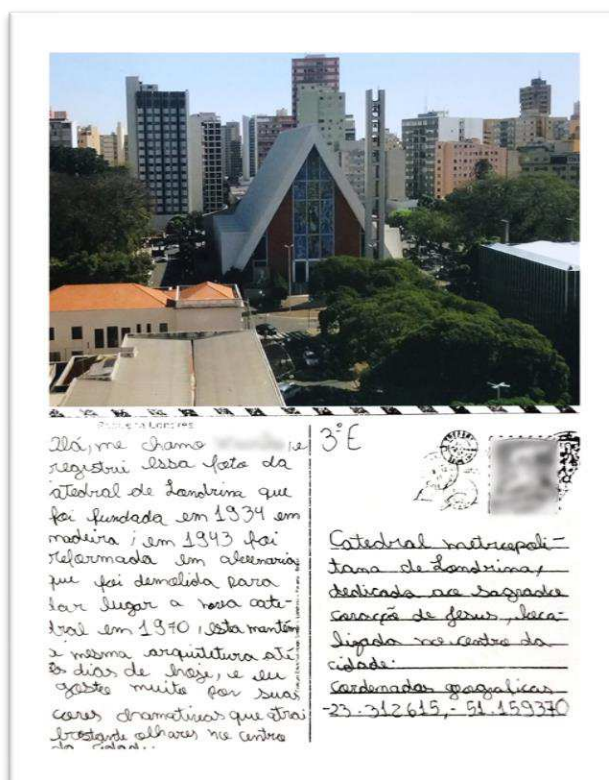 Pequena Londres
Olá, me chamo , e
registrei essa foto da
atedral de Londrina que
foi fundada em 1934 em
madeira ; em 1943 foi
reformada em alvenaria
que foi demolida para
dar lugar a nova cate-
dral em 1970 , esta mantém
a mesma arquitetura até
os dias de hoje, e eu
gosto muito por suas
cores chamativas que atrai
bastante olhares no centro
da cidade.
3°E
Catedral metropoli-
tana de Londrina,
dedicada ao Sagrado
coração de Jesus, loca-
lizada no centro da
cidade:
Cordenadas geograficas
-23.312615, -51.159370